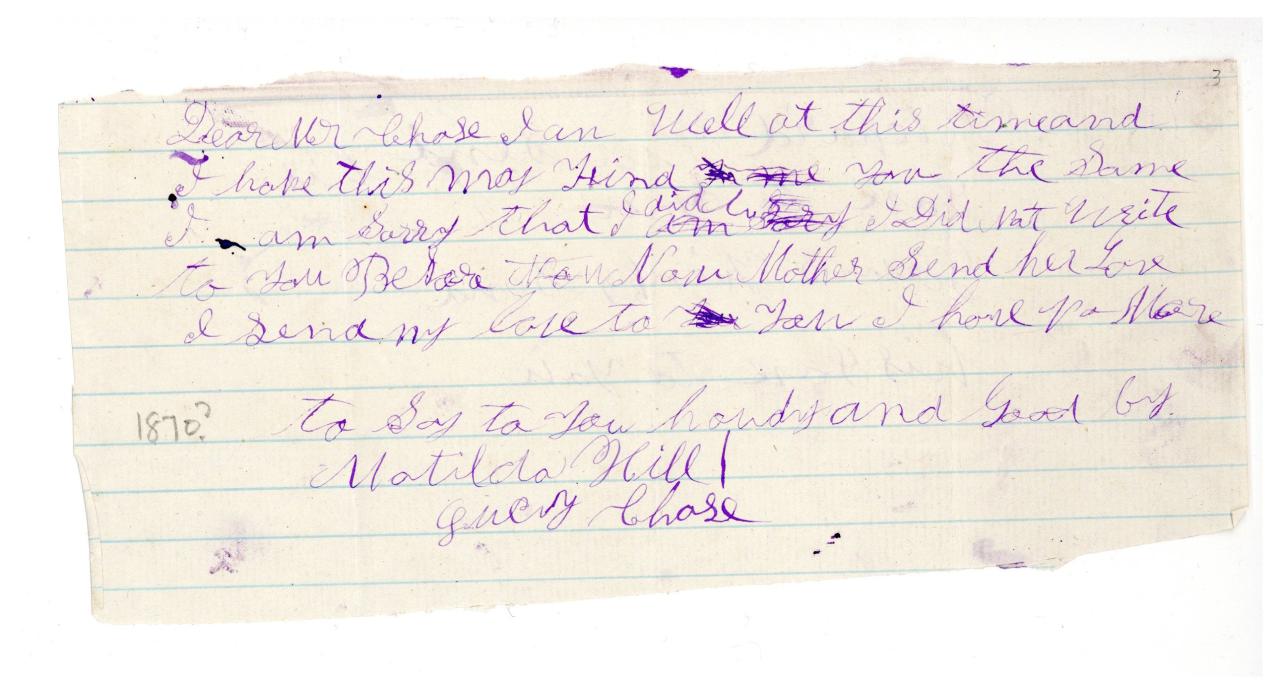 3
Dear Mr Chase I an Well at this time and
I hope this may Find You the Same
I am Sorry that I did I Did not Write
to You Before Now Mother Send her Love
I Send my love to You I have no More
1870?
to Say to You howdy and Good by
Matilda Hill
Chase